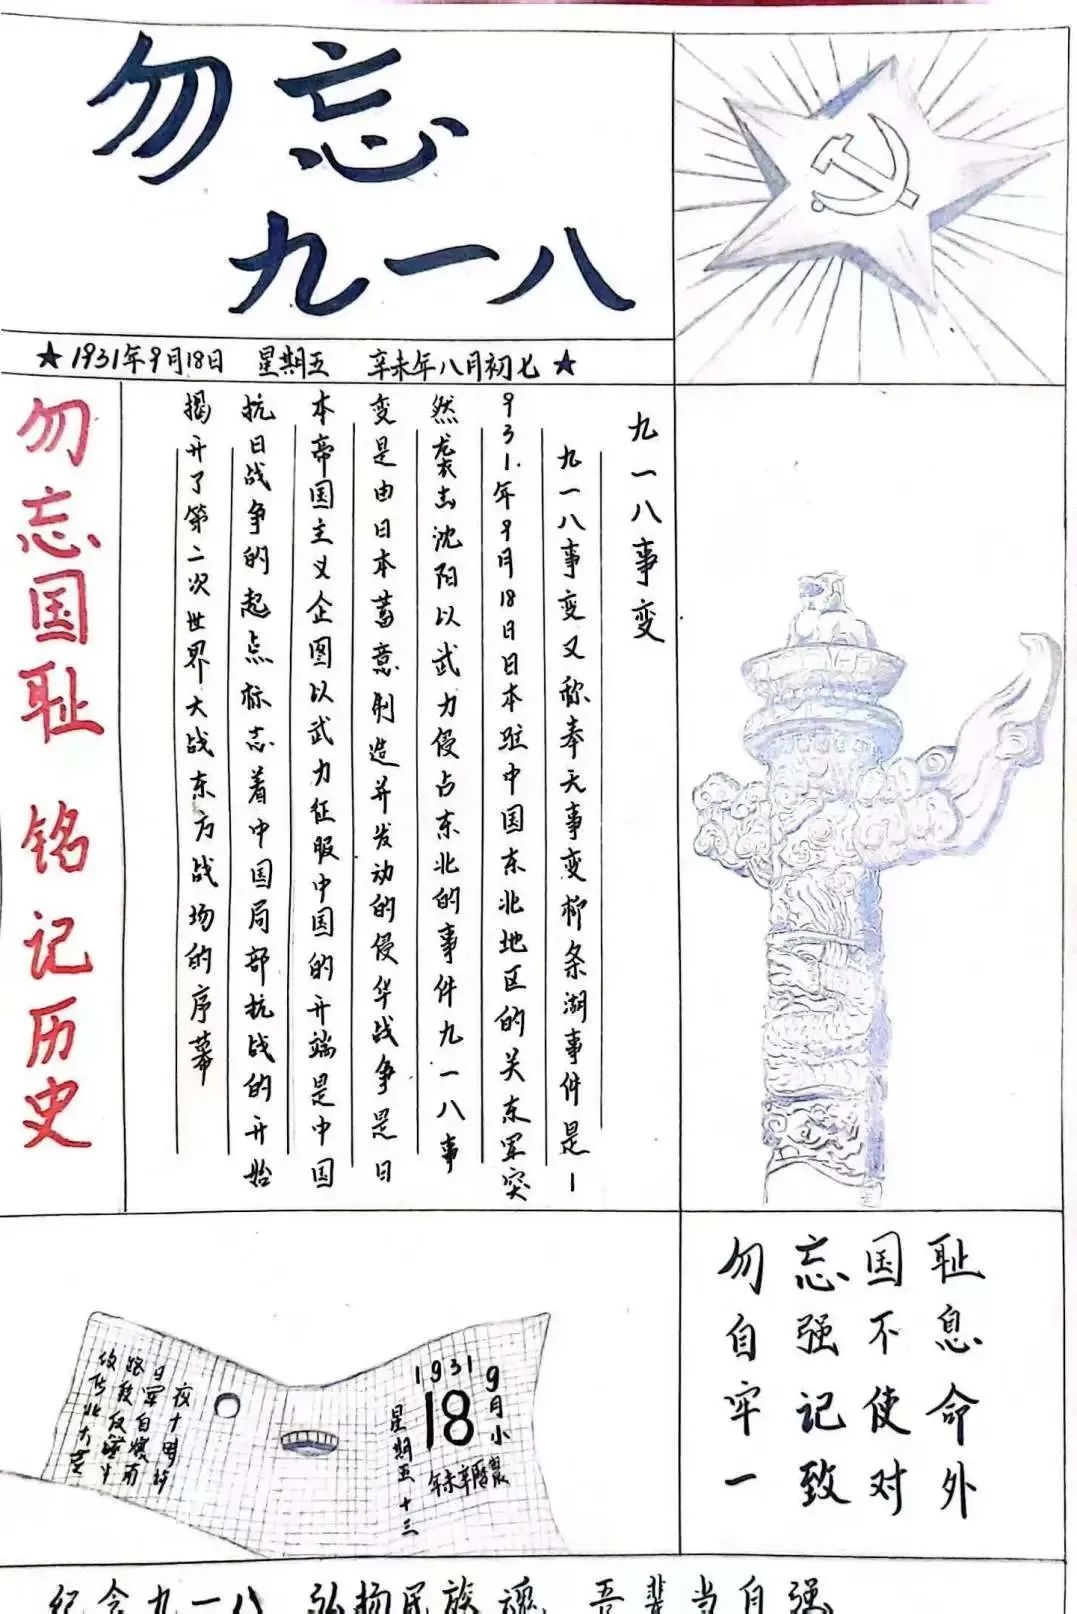 勿忘
九一八
★1931年9月18日 星期五 辛未年八月初七★
勿忘国耻 铭记历史
九一八事变
九一八事变又称奉天事变柳条湖事件是1
931.年9月18日日本驻中国东北地区的关东军突
然袭击沈阳以武力侵占东北的事件九一八事
变是由日本蓄意制造并发动的侵华战争是日
本帝国主义企图以武力征服中国的开端是中国
抗日战争的起点标志着中国局部抗战的开始
揭开了第二次世界大战东方战场的序幕
1931
9月小
18
星期五
十三
夜十时许
日军自爆南
勿忘国耻
自强不息
牢记使命
一致对外
纪念九一八 弘扬民族魂 吾辈当自强